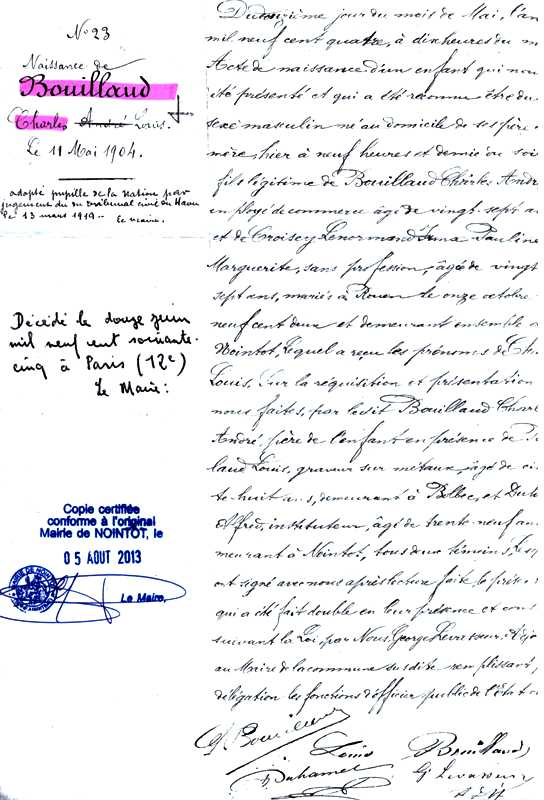 N° 23
Naissance de
Bouillaud
Charles André Louis.
Le 11 Mai 1904.
adopté pupille de la Nation par
jugement du tribunal civil du Havre
le 13 mars 1919 — Le maire.
Décédé le douze juin
mil neuf cent soixante-
cinq à Paris (12e)
Le Maire:
Copie certifiée
conforme à l'original
Mairie de NOINTOT, le
05 AOUT 2013
Le Maire,
Du douzième jour du mois de Mai, l'an
mil neuf cent quatre, à dix heures du m
Acte de naissance d'un enfant qui nou
été présenté et qui a été reconnu être du
sexe masculin né au domicile de ses père
mère, hier à neuf heures et demie du soir
fils légitime de Bouillaud Charles André
employé de commerce âgé de vingt-sept an
et de Croisey Lenormand Irma Pauline
Marguerite, sans profession, âgée de vingt
sept ans, mariés à Rouen le onze octobre
neuf cent deux et demeurant ensemble
Nointot, Lequel a reçu les prénoms de Ch
Louis, Sur la réquisition et présentation
nous faites, par ledit Bouillaud Charl
André, père de l'enfant en présence de
laud Louis, graveur sur métaux, âgé de ci
te-huit ans, demeurant à Bolbec, et Du
Alfred, instituteur, âgé de trente-neuf an
meurant à Nointot, tous deux témoins, Les
ont signé avec nous après lecture faite le prés
qui a été fait double en leur présence et cons
suivant la Loi, par Nous, George Levasseur, adjo
au Maire de la commune susdite remplissant
délégation les fonctions d'officier public de l'état c
Ch Bouillaud
Louis Bouillaud
Duhamel
G. Levasseur